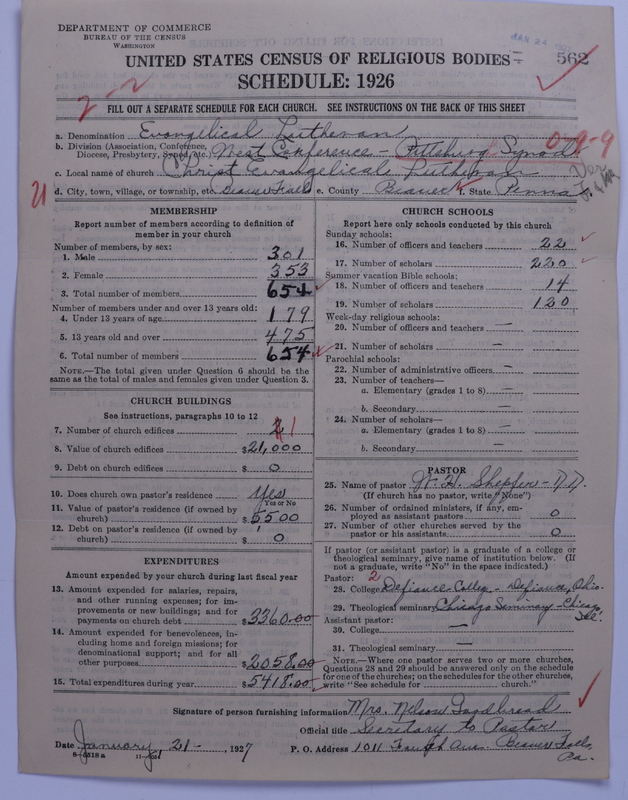 DEPARTMENT OF COMMERCE
BUREAU OF THE CENSUS
WASHINGTON
UNITED STATES CENSUS OF RELIGIOUS BODIES
562
SCHEDULE: 1926
2-2
FILL OUT A SEPARATE SCHEDULE FOR EACH CHURCH. SEE INSTRUCTIONS ON THE BACK OF THIS SHEET
a. Denomination Evangelical Lutheran
b. Division (Association, Conference, Diocese, Presbytery, Synod, etc.) West Conference - Pittsburg Synod
0-9-9
c. Local name of church Christ Evangelical Lutheran
21
d. City, town, village, or township, etc. Beaver Falls e. County Beaver f. State Penna
MEMBERSHIP
Report number of members according to definition of
member in your church
Number of members, by sex:
1. Male 301
2. Female 353
3. Total number of members 654
Number of members under and over 13 years old:
4. Under 13 years of age 179
5. 13 years old and over 475
6. Total number of members 654
NOTE.—The total given under Question 6 should be the
same as the total of males and females given under Question 3.
CHURCH BUILDINGS
See instructions, paragraphs 10 to 12
7. Number of church edifices 2 1
8. Value of church edifices $21,000
9. Debt on church edifices $ 0
10. Does church own pastor's residence Yes
Yes or No
11. Value of pastor's residence (if owned by
church) $5500
12. Debt on pastor's residence (if owned by
church) $ 0
EXPENDITURES
Amount expended by your church during last fiscal year
13. Amount expended for salaries, repairs,
and other running expenses; for im-
provements or new buildings; and for
payments on church debt $3360.00
14. Amount expended for benevolences, in-
cluding home and foreign missions; for
denominational support; and for all
other purposes $2058.00
15. Total expenditures during year $5418.00
CHURCH SCHOOLS
Report here only schools conducted by this church
Sunday schools:
16. Number of officers and teachers 22
17. Number of scholars 220
Summer vacation Bible schools:
18. Number of officers and teachers 14
19. Number of scholars 120
Week-day religious schools:
20. Number of officers and teachers —
21. Number of scholars —
Parochial schools:
22. Number of administrative officers —
23. Number of teachers—
a. Elementary (grades 1 to 8) —
b. Secondary —
24. Number of scholars—
a. Elementary (grades 1 to 8) —
b. Secondary —
PASTOR
25. Name of pastor W. H. Shepfer
(If church has no pastor, write "None")
26. Number of ordained ministers, if any, em-
ployed as assistant pastors 0
27. Number of other churches served by the
pastor or his assistants 0
If pastor (or assistant pastor) is a graduate of a college or
theological seminary, give name of institution below. (If
not a graduate, write "No" in the space indicated.)
Pastor: 2
28. College Defiance College - Defiance, Ohio.
29. Theological seminary Chicago Seminary - Chicago, Ill.
Assistant pastor:
30. College —
31. Theological seminary —
NOTE.—Where one pastor serves two or more churches,
Questions 28 and 29 should be answered only on the schedule
for one of the churches; on the schedules for the other churches,
write "See schedule for church."
Signature of person furnishing information Mrs. Nelson
Official title Secretary to Pastor
Date January 21-, 1927
P. O. Address 1011 Fourth Ave. Beaver Falls, Pa.
8-5518 a